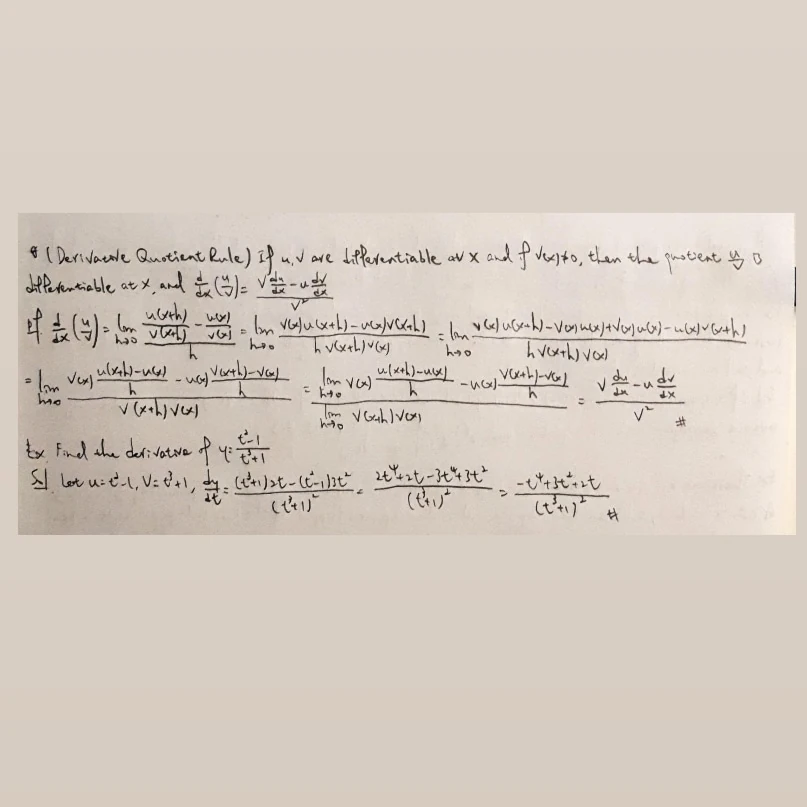 * (Derivative Quotient Rule) If u, v are differentiable at x and if v(x)≠0, then the quotient u/v is
differentiable at x, and d/dx (u/v) = (v du/dx - u dv/dx)/v²
pf d/dx (u/v) = lim h→0 (u(x+h)/v(x+h) - u(x)/v(x))/h = lim h→0 (v(x)u(x+h) - u(x)v(x+h))/(h v(x+h)v(x)) = lim h→0 (v(x)u(x+h) - v(x)u(x) + v(x)u(x) - u(x)v(x+h))/(h v(x+h)v(x))
= lim h→0 (v(x) (u(x+h)-u(x))/h - u(x) (v(x+h)-v(x))/h)/(v(x+h)v(x)) = (lim h→0 v(x) (u(x+h)-u(x))/h - u(x) (v(x+h)-v(x))/h)/(lim h→0 v(x+h)v(x)) = (v du/dx - u dv/dx)/v² #
Ex. Find the derivative of y = (t²-1)/(t³+1)
Sol Let u = t²-1, v = t³+1, dy/dt = ((t³+1)2t - (t²-1)3t²)/(t³+1)² = (2t⁴+2t-3t⁴+3t²)/(t³+1)² = (-t⁴+3t²+2t)/(t³+1)² #